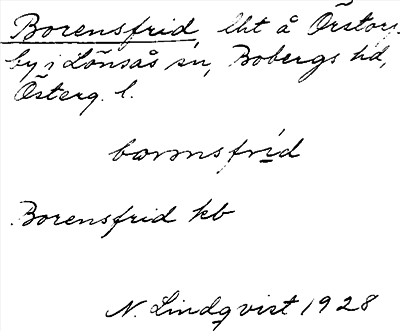 Borensfrid, lht å Örstorp
by i Lönsås sn, Bobergs hd,
Österg. l.
bormsfríd
Borensfrid kb
N. Lindqvist 1928